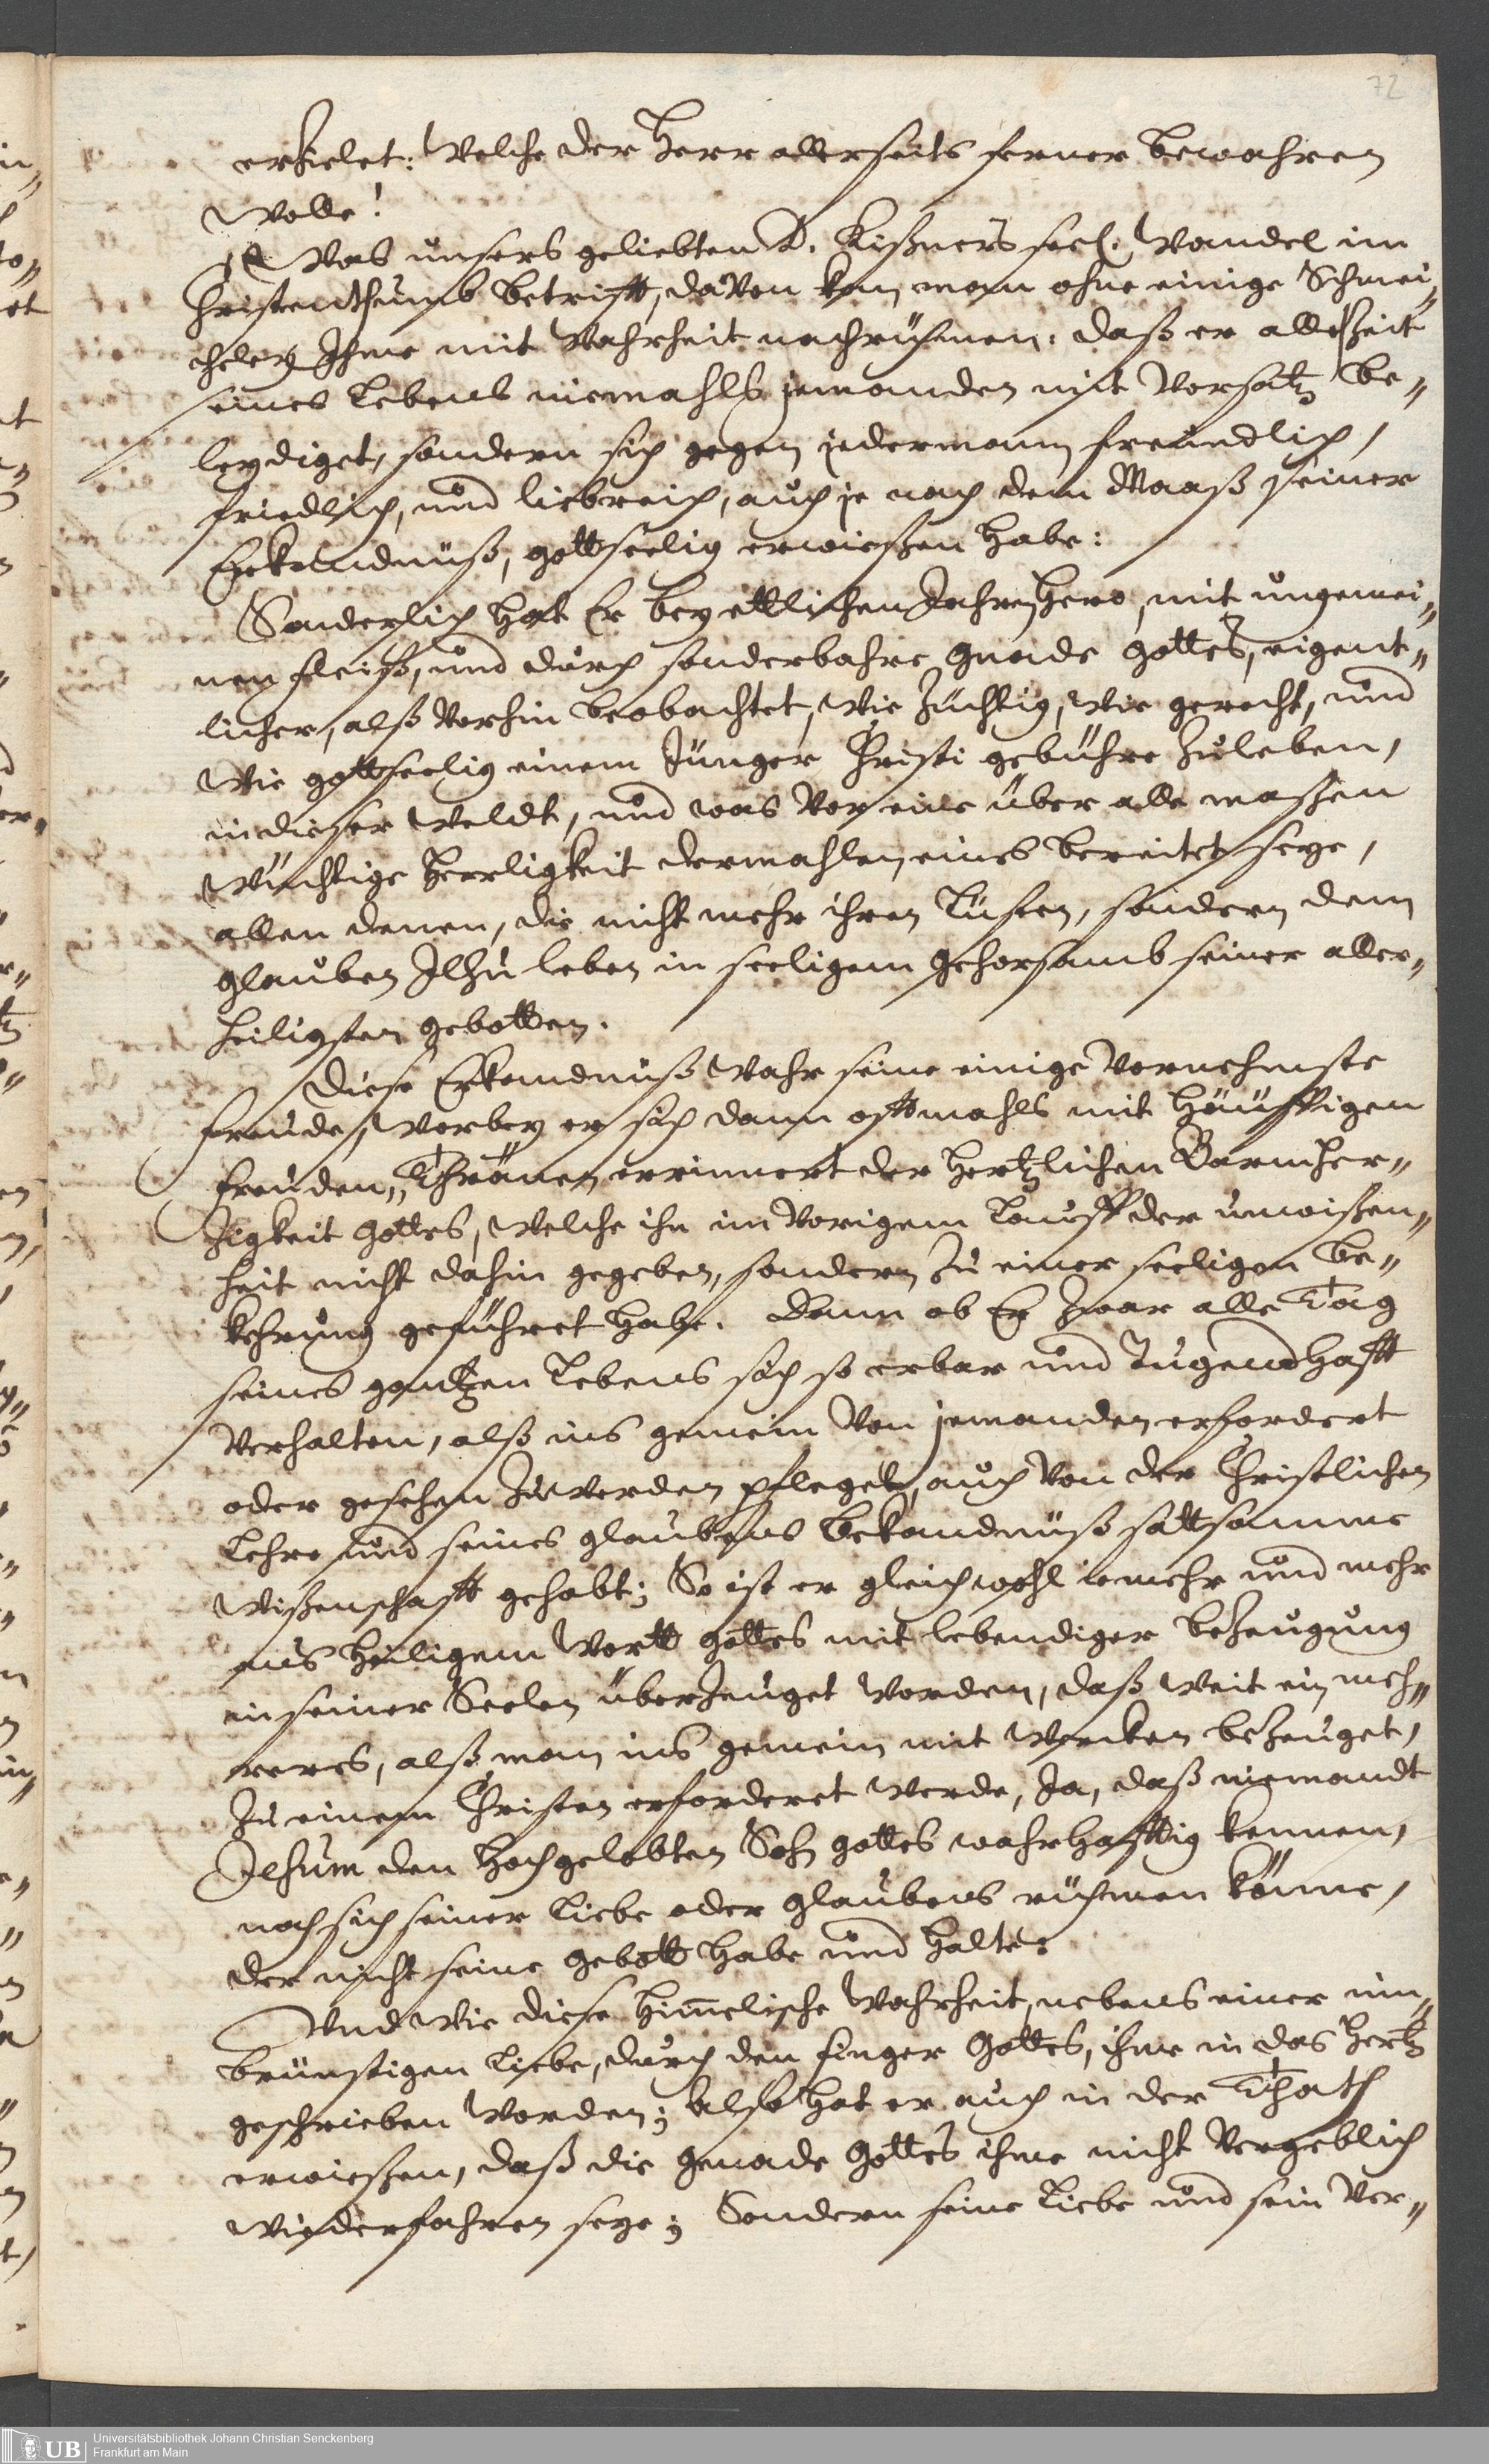 72
erzielet: Welche der Herr allerseits ferner bewahren
Wolle!
Was unsers geliebten D. Kißners seel. Wandel im
Christenthumb betrifft, davon kan man ohne einige Schmei„
cheley Ihme mit Wahrheit nachrühmen: daß er alle Zeit
seines Lebens niemahls jemanden mit Vorsatz be„
leydiget, sondern sich gegen jedermann freundlich,
friedlich, und liebreich, auch je nach dem Maaß seiner
Erkandnüß, gottseelig erwießen habe:
Sonderlich hat Er bey ettlichen Jahren hero, mit ungemei„
nen fleiß, und durch sonderbahre gnade Gottes, eigent„
licher, alß Vorhin beobachtet, Wie züchtig, Wie gerecht, und
Wie gottseelig einem Jünger Christi gebühre zuleben,
in dießer Weldt, und was Vor eine über alle maßen
Wüchtige Herrligkeit dermahlen eines bereitet seye,
allen denen, die nicht mehr ihren Lüsten, sondern dem
glauben JEsu leben in seeligem gehorsamb seiner aller„
heiligsten gebotten.
Diese Erkandnüß Wahr seine einige Vornehmste
freude, Worbey er sich dann offtmahls mit häuffigen
freuden„Thränen errinnert der hertzlichen Barmher„
zigkeit Gottes, Welche ihn im Vorigem Lauff der unwißen„
heit nicht dahin gegeben, sondern zu einer seeligen be„
kehrung geführet habe. Dann ob Er zwar alle Tag
seines gantzen Lebens sich so erbar und Tugendhafft
Verhalten, alß ins gemein Von jemanden erfordert
oder gesehen zu werden pfleget, auch Von der Christlichen
Lehre und seines glaubens bekandnüß sattsamme
Wißenschafft gehabt; So ist er gleichwohl ie mehr und mehr
aus heiligem Wortt Gottes mit lebendiger bezeugung
in seiner Seelen überzeuget Worden, daß Weit ein meh„
rers, alß man ins gemein mit Wercken bezeuget,
zu einem Christen erforderet Werde, Ja, daß niemandt
JEsum den hochgelobten Sohn Gottes wahrhafftig kennen,
noch sich seiner Liebe oder glaubens rühmen könne,
der nicht seine gebott habe und halte:
Und Wie diese himmelische Wahrheit, nebens einer inn„
brünstigen Liebe, durch den finger Gottes, ihme in das Hertz
geschrieben Worden; Also hat er auch in der That
erwießen, daß die gnade Gottes ihme nicht Vergeblich
Wiederfahren seye; Sondern seine Liebe und sein Ver„
UB
Universitätsbibliothek Johann Christian Senckenberg
Frankfurt am Main